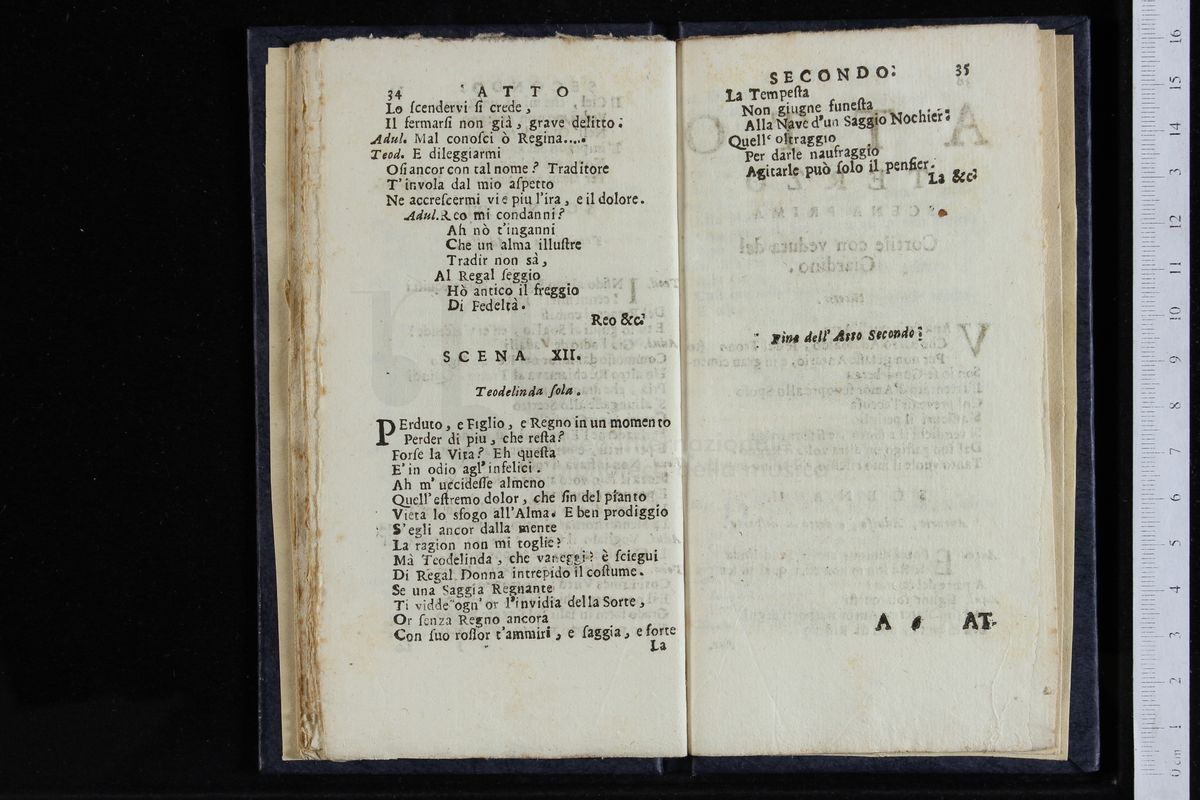 34 ATTO
Lo ſcendervi ſi crede,
Il fermarſi non già, grave delitto.
Adul. Mal conoſci ò Regina....
Teod. E dileggiarmi
Oſi ancor con tal nome? Traditore
T'invola dal mio aſpetto
Ne accreſcermi vie piu l'ira, e il dolore.
Adul. Reo mi condanni?
Ah nò t'inganni
Che un alma illuſtre
Tradir non sà,
Al Regal ſeggio
Hò antico il freggio
Di Fedeltà.
Reo &c.
SCENA XII.
Teodelinda ſola.
PErduto, e Figlio, e Regno in un momento
Perder di piu, che reſta?
Forſe la Vita? Eh queſta
E' in odio agl' infelici.
Ah m' uccideſſe almeno
Quell' eſtremo dolor, che ſin del pianto
Vieta lo sfogo all'Alma. E ben prodiggio
S'egli ancor dalla mente
La ragion non mi toglie?
Mà Teodelinda, che vaneggi? è ſciegui
Di Regal Donna intrepido il coſtume.
Se una Saggia Regnante
Ti vidde ogn' or l'invidia della Sorte,
Or ſenza Regno ancora
Con ſuo roſſor t'ammiri, e ſaggia, e forte
La
SECONDO. 35
La Tempeſta
Non giugne funeſta
Alla Nave d'un Saggio Nochier:
Quell' oltraggio
Per darle naufraggio
Agitarle può ſolo il penſier.
La &c.
Fine dell' Atto Secondo.
A AT-
0 cm 1 2 3 4 5 6 7 8 9 10 11 12 13 14 15 16